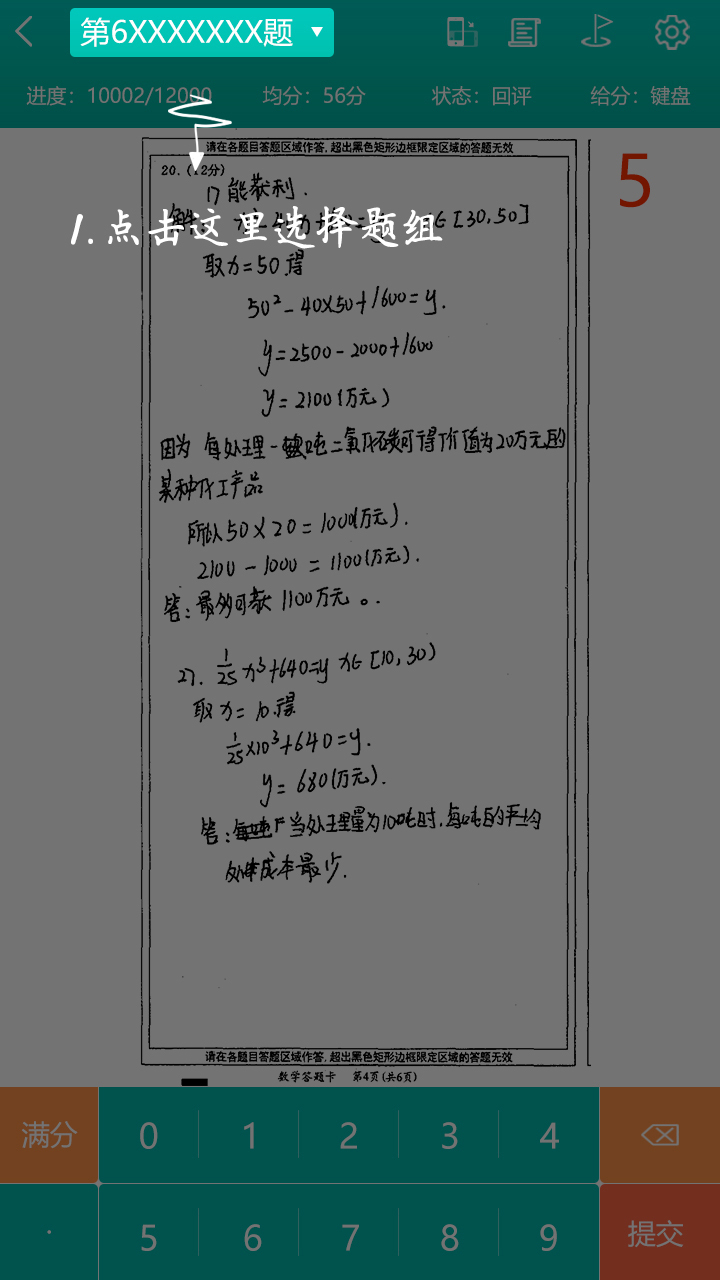 第6XXXXXXX题
进度：10002/12000 均分：56分 状态：回评 给分：键盘
请在各题目答题区域作答，超出黑色矩形边框限定区域的答题无效
5
20．(12分)
1) 能获利．
∈[30,50]
1.点击这里选择题组
取x=50得
50²-40×50+1600=y.
y=2500-2000+1600
y=2100(万元)
因为 每处理一吨二氧化碳可得价值为20万元的
某种化工产品
所以50×20=1000(万元).
2100-1000=1100(万元).
答：最多可获1100万元。.
2). 1/25 x³+640=y x∈[10,30)
取x=10.得
1/25×10³+640=y.
y=680(万元).
答：当处理量为10吨时，每吨的平均
成本最少.
请在各题目答题区域作答，超出黑色矩形边框限定区域的答题无效
数学答题卡 第4页(共6页)
满分 0 1 2 3 4
. 5 6 7 8 9 提交